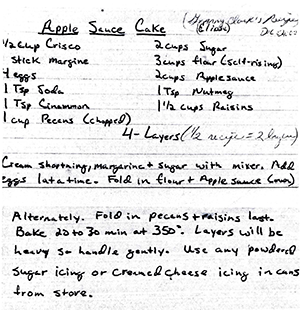 Apple Sauce Cake
½ cup Crisco 2 cups Sugar
Stick Margine 3 cups flour (self-rising)
4 eggs 2 cups Applesauce
1 Tsp Soda 1 Tsp Nutmeg
1 Tsp Cinammon 1½ cups Raisins
1 cup Pecans (chopped)
4-Layers (½ recipe = 2 layers)
Cream shortning, margarine + sugar with mixer. Add
eggs 1 at a time. Fold in flour + Apple sauce (over)
Alternately. Fold in pecans + raisins last.
Bake 20 to 30 min at 350°. Layers will be
heavy so handle gently. Use any powdered
sugar icing or creamed cheese icing in cans
from store.